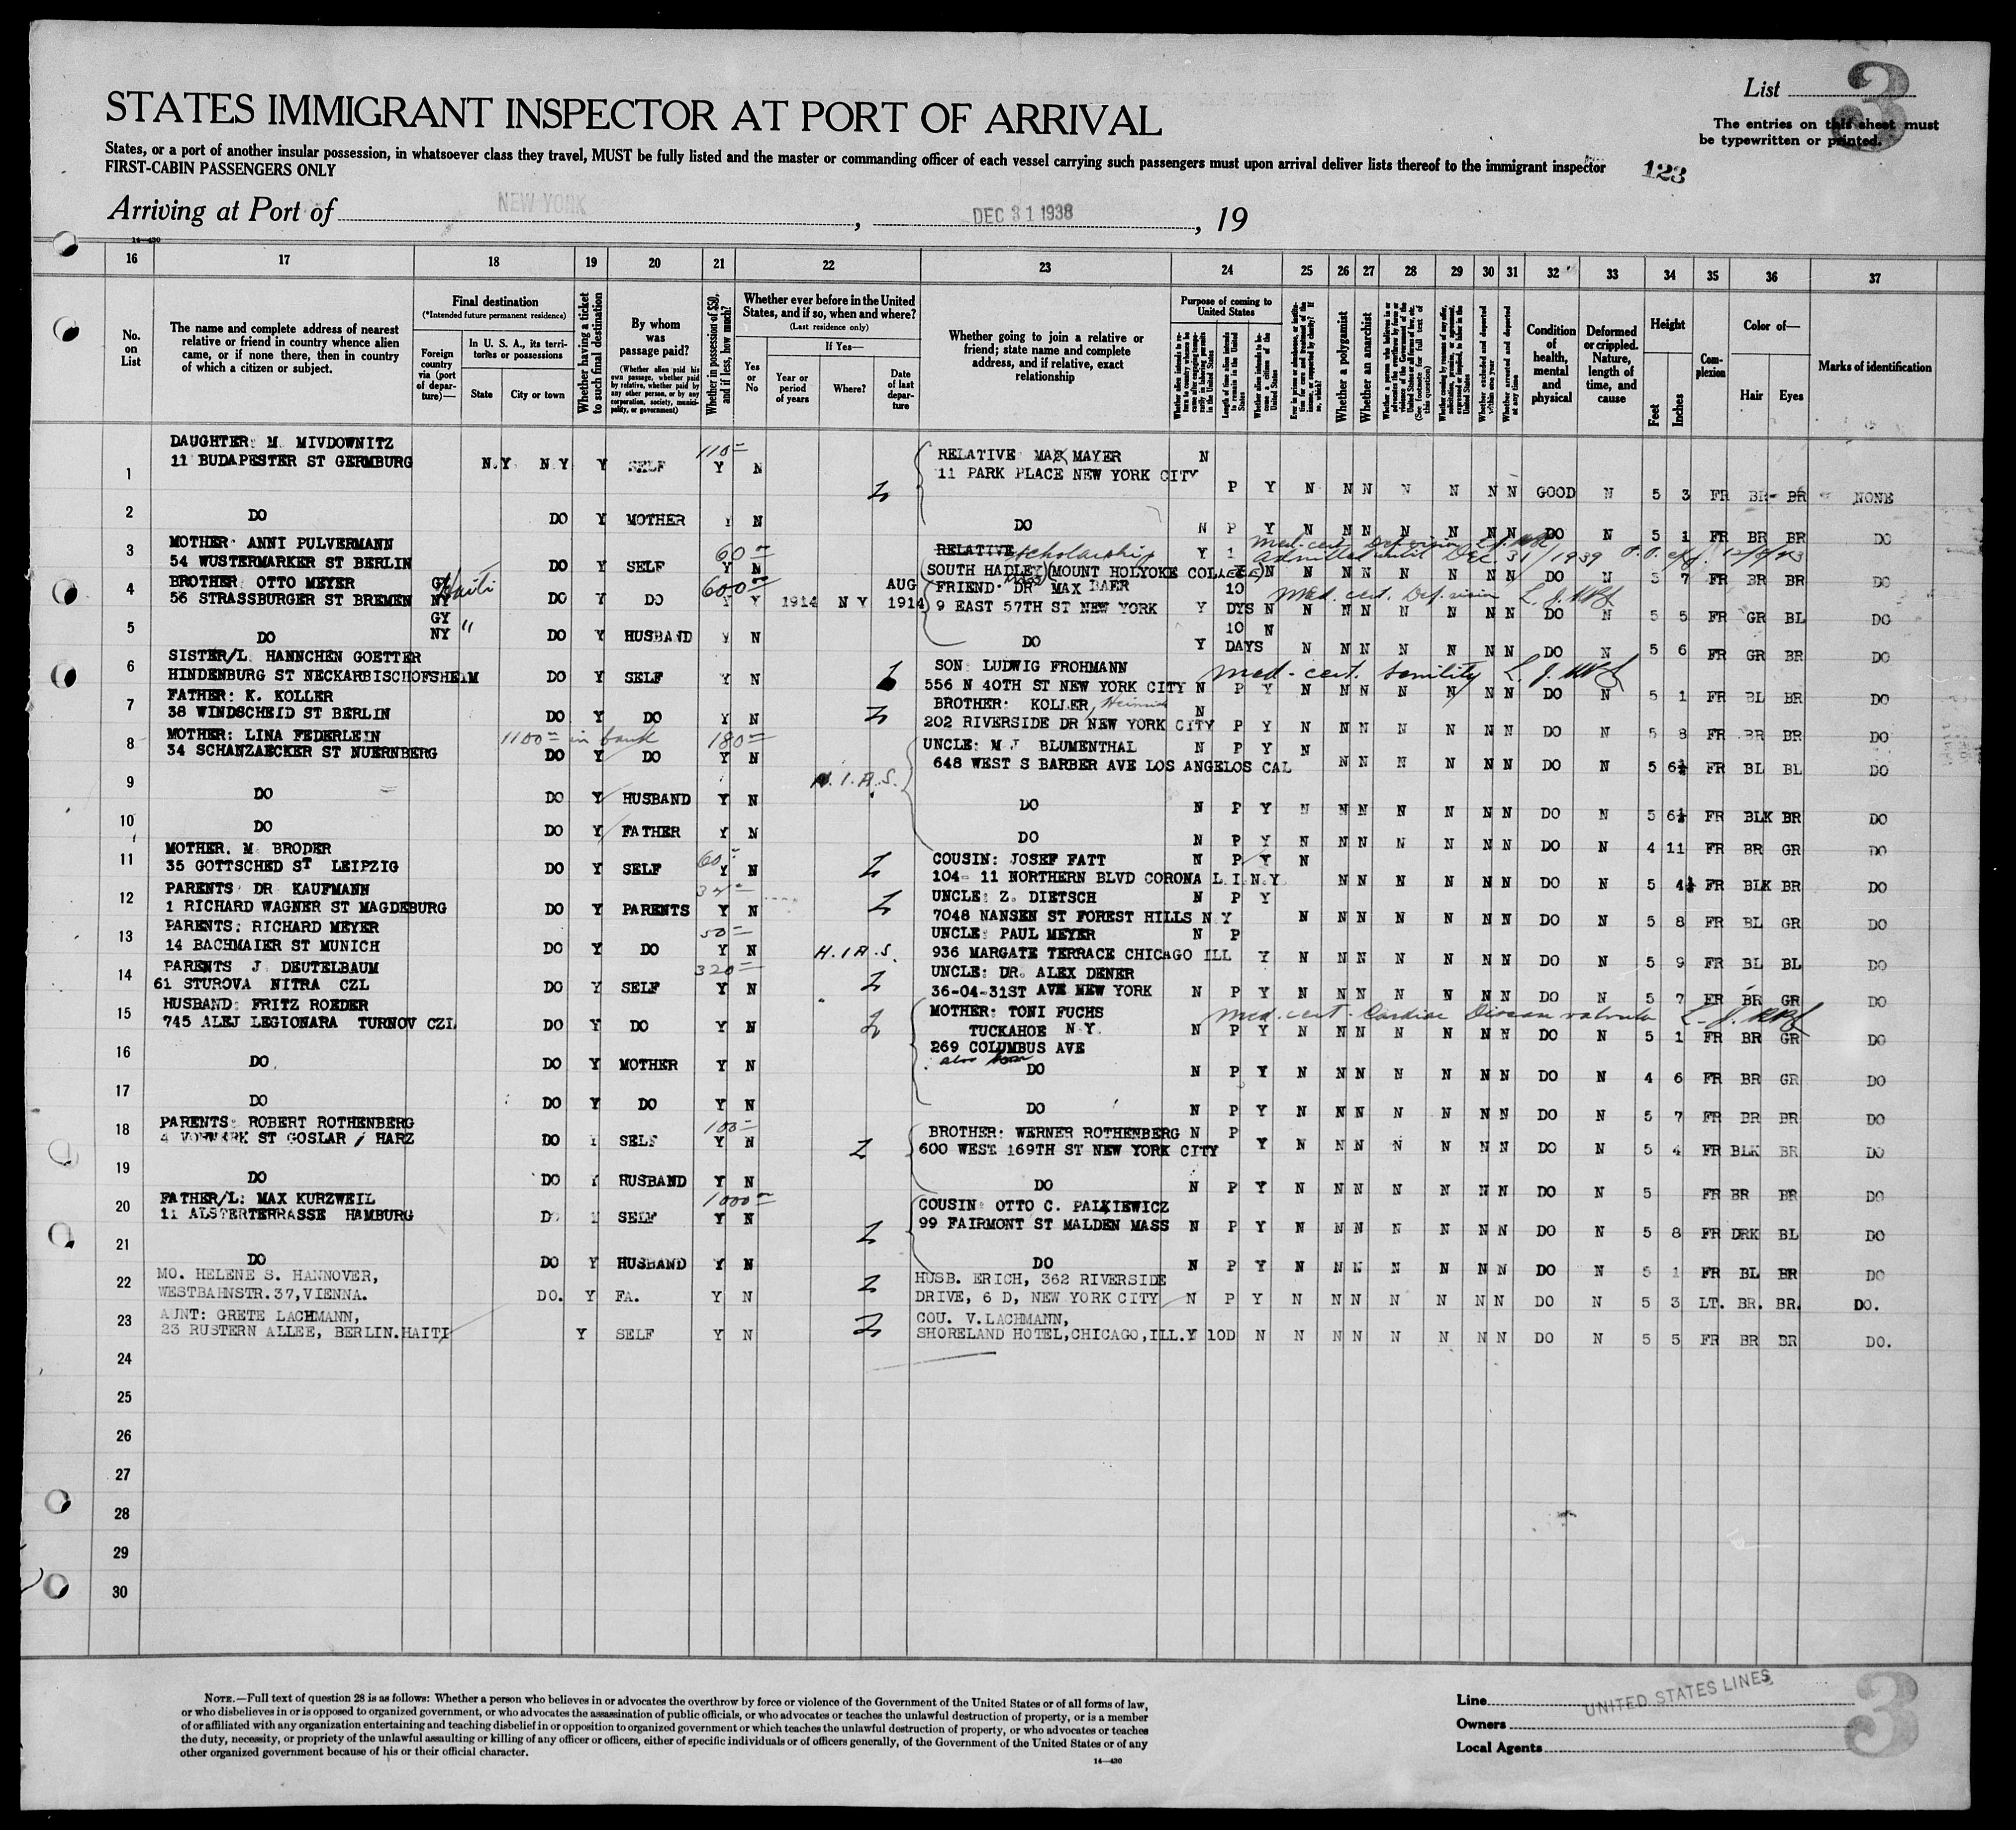 List
3
The entries on this sheet must
be typewritten or printed.
STATES IMMIGRANT INSPECTOR AT PORT OF ARRIVAL
States, or a port of another insular possession, in whatsoever class they travel, MUST be fully listed and the master or commanding officer of each vessel carrying such passengers must upon arrival deliver lists thereof to the immigrant inspector
FIRST-CABIN PASSENGERS ONLY
123
Arriving at Port of NEW YORK, DEC 31 1938, 19
14—430
16 17 18 19 20 21 22 23 24 25 26 27 28 29 30 31 32 33 34 35 36 37
No. on List
The name and complete address of nearest relative or friend in country whence alien came, or if none there, then in country of which a citizen or subject.
Final destination
(*Intended future permanent residence)
Foreign country via (port of departure)—
In U. S. A., its territories or possessions
State
City or town
Whether having a ticket to such final destination
By whom was passage paid?
(Whether alien paid his own passage, whether paid by relative, whether paid by any other person, or by any corporation, society, municipality, or government)
Whether in possession of $50, and if less, how much?
Whether ever before in the United States, and if so, when and where?
(Last residence only)
Yes or No
If Yes—
Year or period of years
Where?
Date of last departure
Whether going to join a relative or friend; state name and complete address, and if relative, exact relationship
Purpose of coming to United States
Length of time alien intends to remain in the United States
Whether alien intends to become a citizen of the United States
Whether a polygamist
Whether an anarchist
Whether excluded and deported within one year
Whether arrested and deported at any time
Condition of health, mental and physical
Deformed or crippled. Nature, length of time, and cause
Height
Feet
Inches
Complexion
Color of—
Hair
Eyes
Marks of identification
DAUGHTER: M. MIVDOWNITZ 110= RELATIVE MAX MAYER N
1 11 BUDAPESTER ST GERMBURG N.Y N Y Y SELF Y N 11 PARK PLACE NEW YORK CITY P Y N N N N N N N GOOD N 5 3 FR BR BR NONE
2 DO DO Y MOTHER Y N DO N P Y N N N N N N N DO N 5 1 FR BR BR DO
MOTHER ANNI PULVERMANN 60= RELATIVE scholarship Y 1 Med. cert. Def. vision Admitted until Dec. 31/1939
3 54 WUSTERMARKER ST BERLIN DO Y SELF Y N SOUTH HADLEY (MOUNT HOLYOKE COLLEGE) N N N N N N N N DO N 5 7 FR BR BR DO
BROTHER OTTO MEYER GY Haiti 600= AUG FRIEND: DR MAX BAER 10 Med. cert. Def. vision
4 56 STRASSBURGER ST BREMEN NY DO Y DO Y Y 1914 N Y 1914 9 EAST 57TH ST NEW YORK Y DYS N N N N N N N N DO N 5 5 FR GR BL DO
GY 10 N
5 DO NY " DO Y HUSBAND Y N DO Y DAYS N N N N N N N DO N 5 6 FR GR BR DO
SISTER/L HANNCHEN GOETTER SON LUDWIG FROHMANN med. cert. senility
6 HINDENBURG ST NECKARBISCHOFSHEIM DO Y SELF Y N 556 N 40TH ST NEW YORK CITY N P Y N N N N N N N DO N 5 1 FR BL BR DO
FATHER: K. KOLLER BROTHER: KOLLER, Heinrich N
7 38 WINDSCHEID ST BERLIN DO Y DO Y N 202 RIVERSIDE DR NEW YORK CITY P Y N N N N N N N DO N 5 8 FR BR BR DO
MOTHER: LINA FEDERLEIN 1100= in bank 180= UNCLE: M J BLUMENTHAL N P Y N
8 34 SCHANZAECKER ST NUERNBERG DO Y DO Y N 648 WEST S BARBER AVE LOS ANGELOS CAL N N N N N N DO N 5 6½ FR BL BL DO
H.I.A.S.
9 DO DO Y HUSBAND Y N DO N P Y N N N N N N N DO N 5 6½ FR BLK BR DO
10 DO DO Y FATHER Y N DO N P Y N N N N N N N DO N 4 11 FR BR GR DO
MOTHER. M BRODER 60= COUSIN: JOSEF FATT N P Y N
11 35 GOTTSCHED ST LEIPZIG DO Y SELF Y N 104- 11 NORTHERN BLVD CORONA L I N Y N N N N N N DO N 5 4½ FR BLK BR DO
PARENTS DR KAUFMANN UNCLE: Z. DIETSCH N P Y
12 1 RICHARD WAGNER ST MAGDEBURG DO Y PARENTS Y N 7048 NANSEN ST FOREST HILLS N Y N N N N N N N DO N 5 8 FR BL GR DO
PARENTS: RICHARD MEYER 50= UNCLE: PAUL MEYER N P
13 14 BACHMAIER ST MUNICH DO Y DO Y N H.I.A.S. 936 MARGATE TERRACE CHICAGO ILL Y N N N N N N N DO N 5 9 FR BL BL DO
PARENTS J. DEUTELBAUM 320= UNCLE: DR. ALEX DENER
14 61 STUROVA NITRA CZL DO Y SELF Y N 36-04-31ST AVE NEW YORK N P Y N N N N N N N DO N 5 7 FR BR GR DO
HUSBAND: FRITZ ROEDER MOTHER: TONI FUCHS med. cert. Cardiac Disease valvular
15 745 ALEJ LEGIONARA TURNOV CZL DO Y DO Y N TUCKAHOE N.Y. N P Y N N N N N N N DO N 5 1 FR BR GR DO
269 COLUMBUS AVE
16 DO DO Y MOTHER Y N DO N P Y N N N N N N N DO N 4 6 FR BR GR DO
17 DO DO Y DO Y N DO N P Y N N N N N N N DO N 5 7 FR BR BR DO
PARENTS: ROBERT ROTHENBERG 100= BROTHER: WERNER ROTHENBERG N P
18 ST GOSLAR / HARZ DO Y SELF Y N 600 WEST 169TH ST NEW YORK CITY Y N N N N N N N DO N 5 4 FR BLK BR DO
19 DO DO Y HUSBAND Y N DO N P Y N N N N N N N DO N 5 FR BR BR DO
FATHER/L: MAX KURZWEIL 1000= COUSIN: OTTO C. PALKIEWICZ
20 11 ALSTERTERRASSE HAMBURG DO Y SELF Y N 99 FAIRMONT ST MALDEN MASS N P Y N N N N N N N DO N 5 8 FR DRK BL DO
21 DO DO Y HUSBAND Y N DO N P Y N N N N N N N DO N 5 1 FR BL BR DO
MO. HELENE S. HANNOVER, HUSB. ERICH, 362 RIVERSIDE
22 WESTBAHNSTR.37,VIENNA. DO. Y FA. Y N DRIVE, 6 D, NEW YORK CITY N P Y N N N N N N N DO N 5 3 LT. BR. BR. DO.
AUNT: GRETE LACHMANN, COU. V.LACHMANN,
23 23 RUSTERN ALLEE, BERLIN.HAITI Y SELF Y N SHORELAND HOTEL,CHICAGO,ILL.Y 10D N N N N N N N N DO N 5 5 FR BR BR DO.
24
25
26
27
28
29
30
NOTE.—Full text of question 28 is as follows: Whether a person who believes in or advocates the overthrow by force or violence of the Government of the United States or of all forms of law,
or who disbelieves in or is opposed to organized government, or who advocates the assassination of public officials, or who advocates or teaches the unlawful destruction of property, or is a member
of or affiliated with any organization entertaining and teaching disbelief in or opposition to organized government or which teaches the unlawful destruction of property, or who advocates or teaches
the duty, necessity, or propriety of the unlawful assaulting or killing of any officer or officers, either of specific individuals or of officers generally, of the Government of the United States or of any
other organized government because of his or their official character.
14—430
Line UNITED STATES LINES
Owners
Local Agents
3